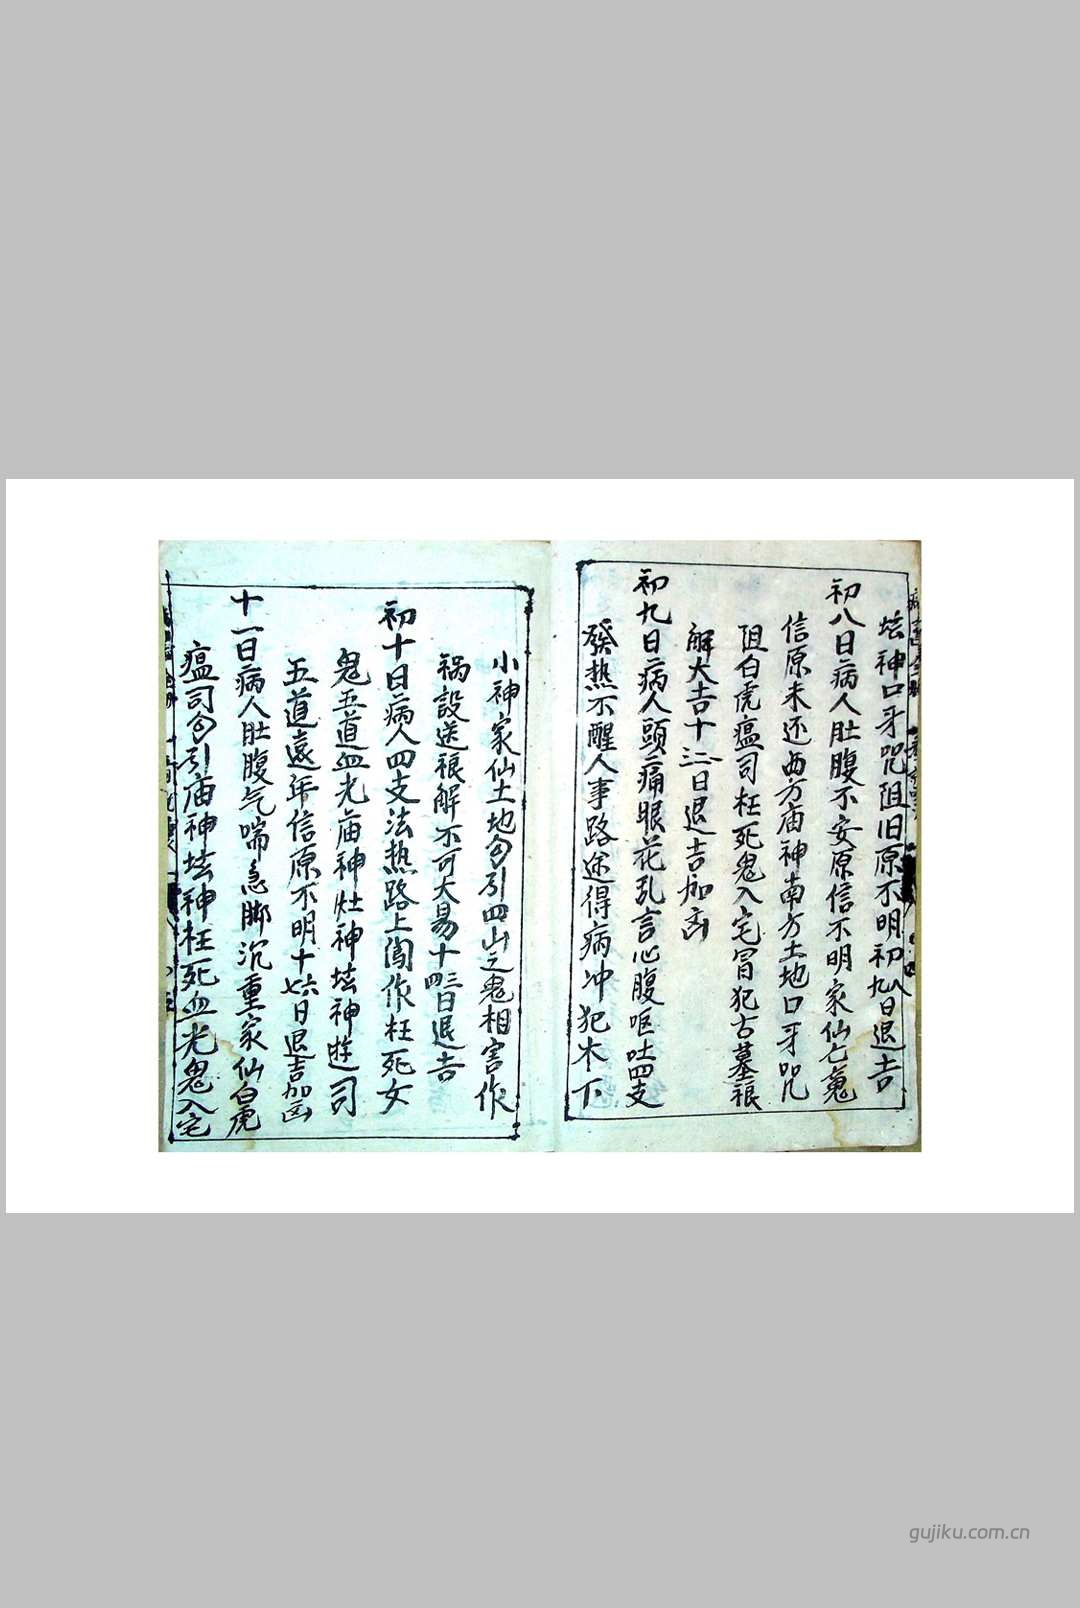 坛神口牙咒阻旧原不明初八九日退吉
初八日病人肚腹不安原信不明家仙亡魂
信原未还西方庙神南方土地口牙咒
阻白虎瘟司枉死鬼入宅冒犯古墓
解大吉十二三日退吉加凶
初九日病人頭痛眼花乱言心腹呕吐四支
發热不醒人事路途得病冲犯木下
小神家仙土地勾引四山之鬼相害作
祸設送禳解不可大易十三四日退吉
初十日病人四支法热路上闯作枉死女
鬼五道血光庙神灶神坛神游司
五道遠年信原不明十六七日退吉加凶
十一日病人肚腹气喘急脚沉重家仙白虎
瘟司勾引庙神坛神枉死血光鬼入宅
gujiku.com.cn